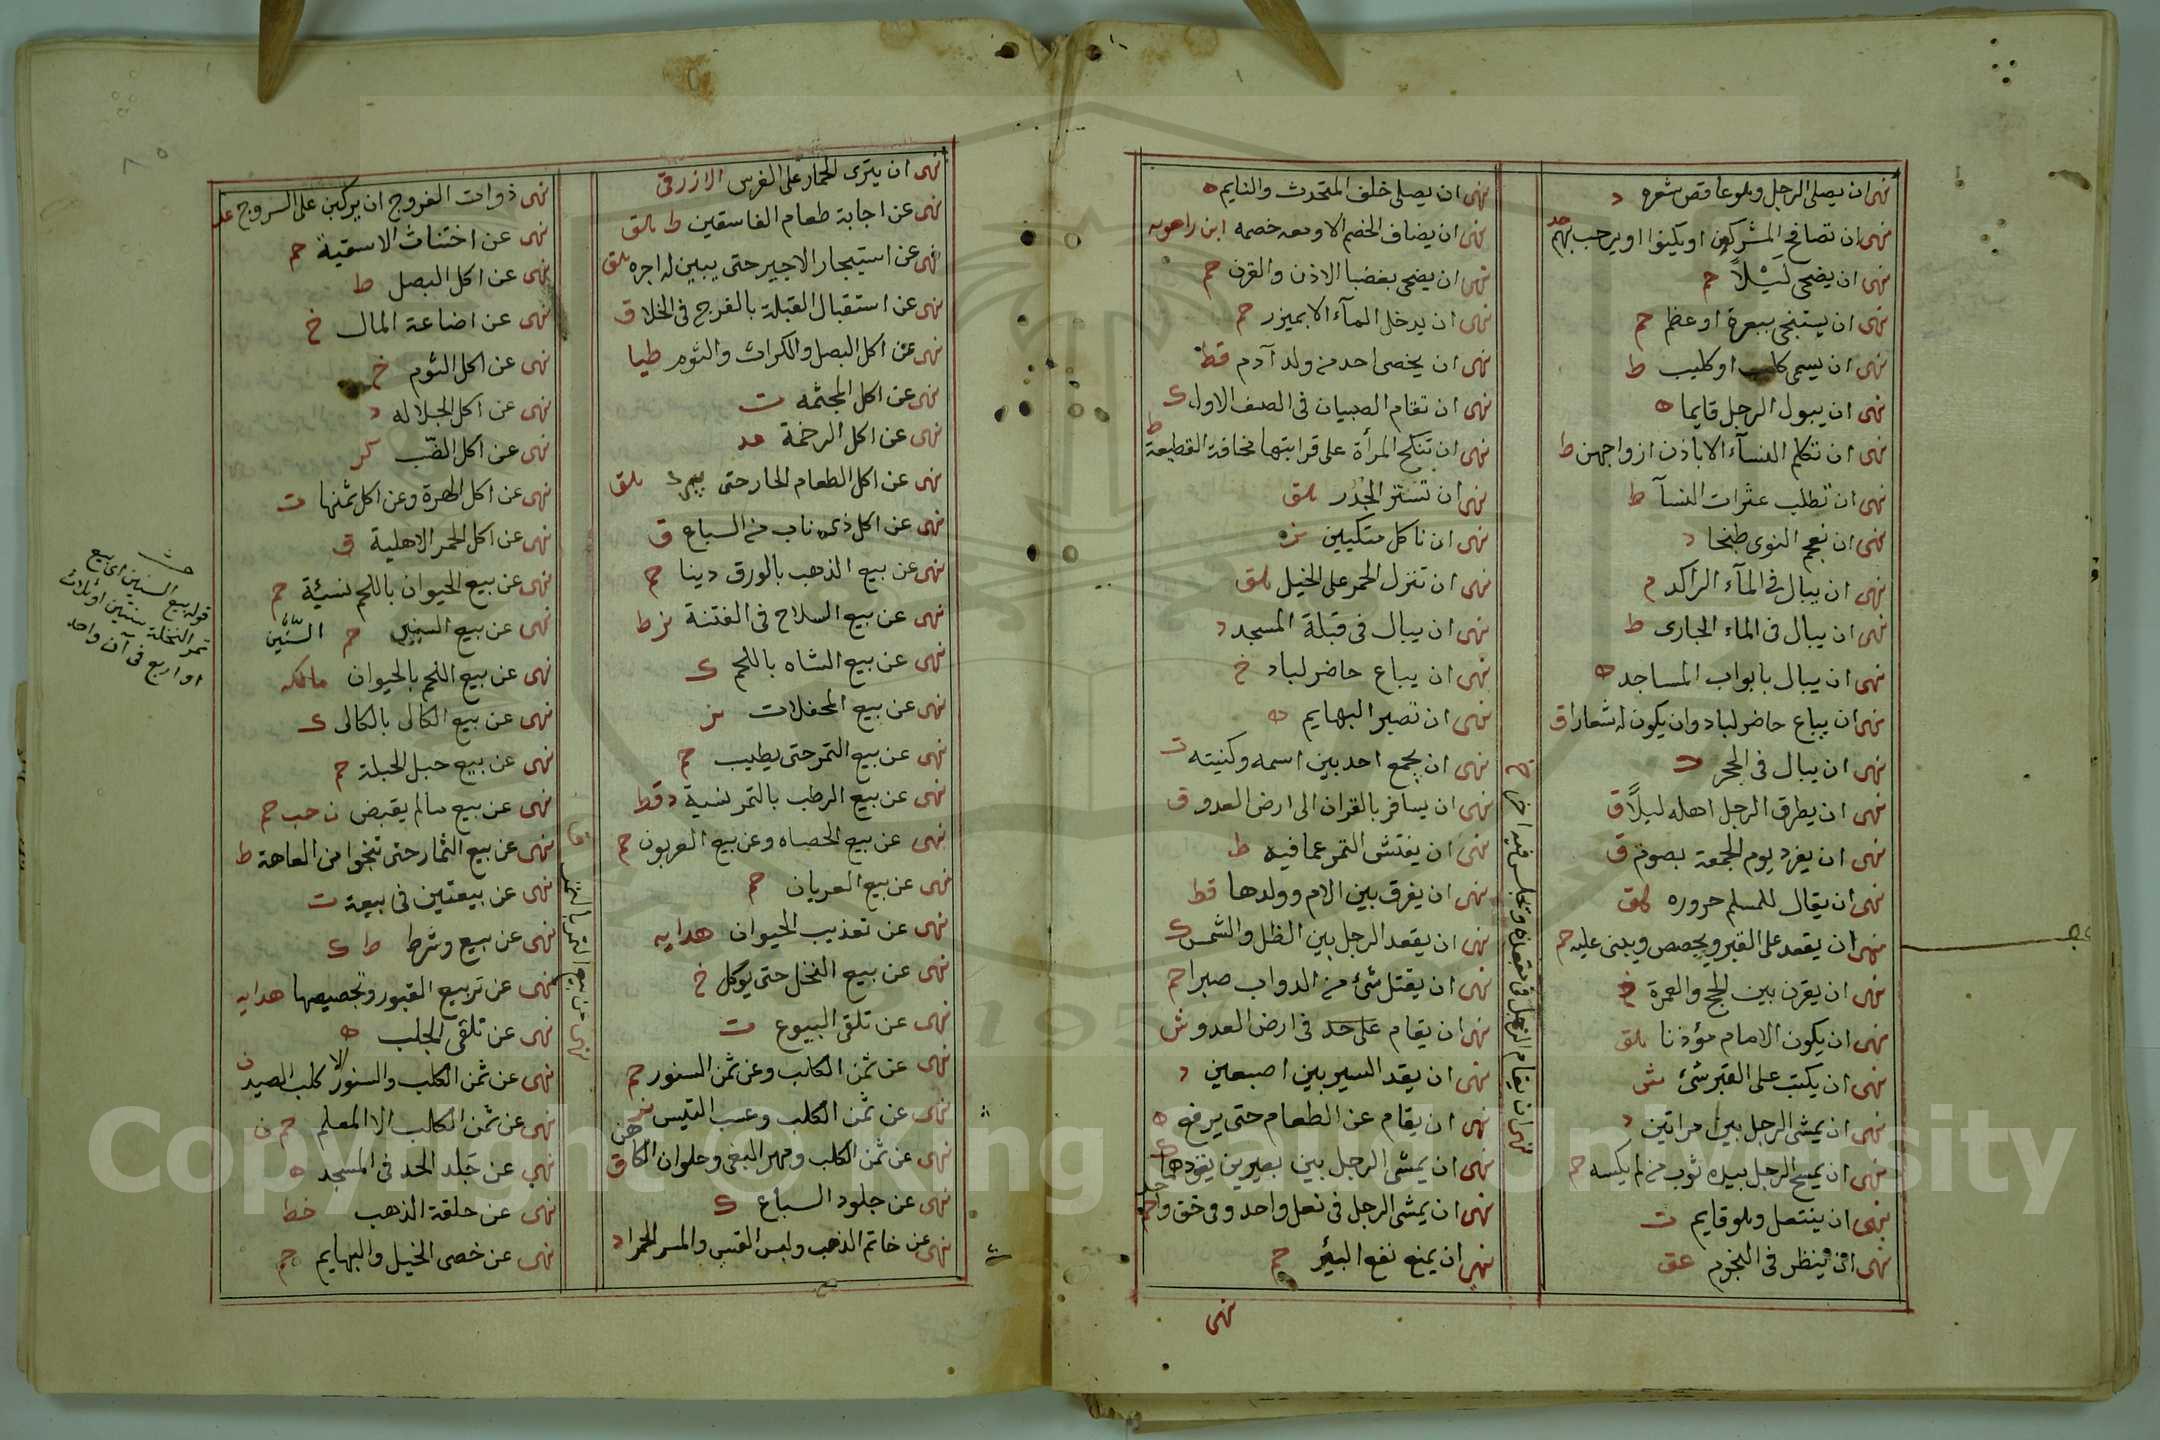 نهى ان يصلى الرجل وهو عاقص شعره د
نهى ان تصافح المشركون او يكنوا او يرحب بهم حد
نهى ان يضحى ليلاً ط
نهى ان يستنجى ببعرة او عظم حم
نهى ان يسمى كلب او كليب ط
نهى ان يبول الرجل قايما ه
نهى ان تكلم النسآء الا باذن ازواجهن ط
نهى ان تطلب عثرات النسآ ط
نهى ان نعجم النوى طبخا د
نهى ان يبال فى المآء الراكد م
نهى ان يبال فى الماء الجارى ط
نهى ان يبال بابواب المساجد ه
نهى ان يباع حاضر لباد وان يكون له شعارا ق
نهى ان يبال فى الجحر د
نهى ان يطرق الرجل اهله ليلاً ق
نهى ان يفرد يوم الجمعة بصوم ق
نهى ان يقال للمسلم صروره هق
نهى ان يقعد على القبر ويجصص ويبنى عليه حم
نهى ان يقرن بين الحج والعمرة خ
نهى ان يكون الامام مؤذنا هق
نهى ان يكتب على القبر شئ ش
نهى ان يمشى الرجل بين مراتين د
نهى ان يمسح الرجل بيده ثوب من لم يكسه حم
نهى ان ينتعل وهو قايم ت
نهى ان ينظر فى النجوم عق
نهى ان يقام الرجل من مقعده ويجلس فيه اخر خ
نهى ان يصلى خلف المتحدث والنايم ه
نهى ان يضاف الخصم الا ومعه خصمه ابن راهويه
نهى ان يضحى بعضبا الاذن والقرن حم
نهى ان يدخل المآء الا بميزر حم
نهى ان يخصى احد من ولد آدم قط
نهى ان تقام الصبيان فى الصف الاول ك
نهى ان تنكح المرأة على قرابتها مخافة القطيعة ط
نهى ان تستر الجدر هق
نهى ان ناكل متكيين نز
نهى ان تنزل الحمر على الخيل هق
نهى ان يبال فى قبلة المسجد د
نهى ان يباع حاضر لباد خ
نهى ان تصبر البهايم ه
نهى ان يجمع احد بين اسمه وكنيته ت
نهى ان يسافر بالقران الى ارض العدو ق
نهى ان يفتش التمر عما فيه ط
نهى ان يفرق بين الام وولدها قط
نهى ان يقعد الرجل بين الظل والشمس ك
نهى ان يقتل شئ من الدواب صبرا حم
نهى ان يقام على حد فى ارض العدو ش
نهى ان يقد السير بين اصبعين د
نهى ان يقام عن الطعام حتى يرفع ه
نهى ان يمشى الرجل بين بعيرين يقودهما ك
نهى ان يمشى الرجل فى نعل واحد وفى خف واحد حم
نهى ان يمنع نفع البئر حم
نهى
نهى ان ينزى الحمار على الفرس الازرقى
نهى عن اجابة طعام الفاسقين ط هق
نهى عن استيجار الاجير حتى يبين له اجره هق
نهى عن استقبال القبلة بالفرج فى الخلا ق
نهى عن اكل البصل والكراث والثوم طيا
نهى عن اكل المجثمه ت
نهى عن اكل الرخمة عد
نهى عن اكل الطعام الحار حتى يبرد هق
نهى عن اكل ذى ناب من السباع ق
نهى عن بيع الذهب بالورق دينا حم
نهى عن بيع السلاح فى الفتنة نز ط
نهى عن بيع الشاه باللحم ك
نهى عن بيع المحفلات نز
نهى عن بيع التمر حتى يطيب حم
نهى عن بيع الرطب بالتمر نسية د قط
نهى عن بيع الحصاه وعن بيع العربون حم
نهى عن بيع العربان حم
نهى عن تعذيب الحيوان هدايه
نهى عن بيع النخل حتى يوكل خ
نهى عن تلقى البيوع ت
نهى عن ثمن الكلب وعن ثمن السنور حم
نهى عن ثمن الكلب وعسب التيس نز
نهى عن ثمن الكلب ومهر البغى وحلوان الكاهن ق
نهى عن جلود السباع ك
نهى عن خاتم الذهب ولبس القسى والمسر الحمرا د
نهى عن بيع الثمر بالتمر ق
نهى ذوات الفروج ان يركبن على السروج عد
نهى عن اختناث الاسقية حم
نهى عن اكل البصل ط
نهى عن اضاعة المال خ
نهى عن اكل الثوم خ
نهى عن اكل الجلاله د
نهى عن اكل الضّب كر
نهى عن اكل الهرة وعن اكل ثمنها ت
نهى عن اكل الحمر الاهلية ق
نهى عن بيع الحيوان باللحم نسيئة حم
نهى عن بيع السنين حم السّنين
نهى عن بيع اللحم بالحيوان مالكه
نهى عن بيع الكالى بالكالى ك
نهى عن بيع حبل الحبلة حم
نهى عن بيع مالم يقبض ن حب حم
نهى عن بيع الثمار حتى تنجوا من العاهة ط
نهى عن بيعتين فى بيعة ت
نهى عن بيع وشرط ط ك
نهى عن تربيع القبور وتجصيصها هدايه
نهى عن تلقى الجلب ه
نهى عن ثمن الكلب والسنور الا كلب الصيد ن
نهى عن ثمن الكلب الا المعلم حم ن
نهى عن جلد الحد فى المسجد ه
نهى عن حلقة الذهب خط
نهى عن خصى الخيل والبهايم حم
قوله بيع السنين اى بيع
ثمر النخلة سنتين او ثلاث
او اربع فى آن واحد
Copyright © King Saud University